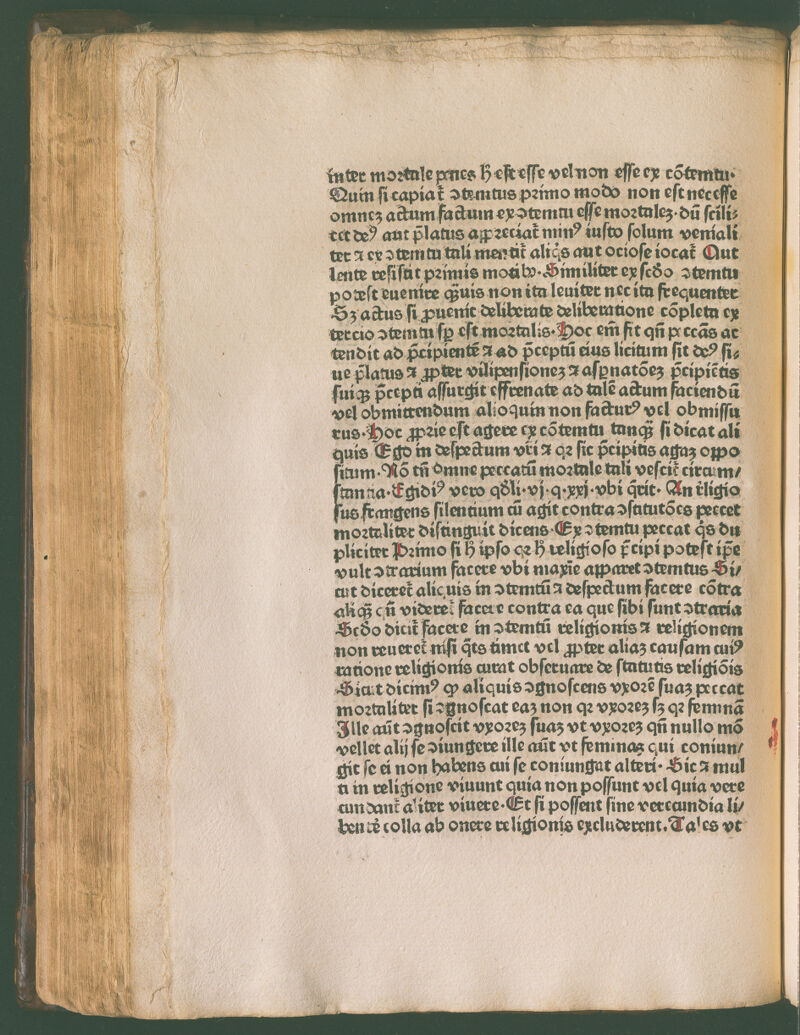 inter moꝛtale penes ħ eſt eſſe vel non eſſe ex cōtemtu·
Quin ſi capiat̄ ↄtemtus pꝛimo modo non eſt neceſſe
omneꝫ actum factum ex ↄtemtu eſſe moꝛtaleꝫ· dū ſcili⸗
cet deꝰ aut p̄latus appꝛeciat̄ minꝰ iuſto ſolum veniali
ter ⁊ ex ↄtemtu tali mentit̄ aliq̇s aut ocioſe iocat̄ Aut
lente reſiſtit pꝛimis motibꝰ· Similiter ex ſcd̄o ↄtemtu
poteſt euenire qͣuis non ita leuiter nec ita frequenter
Sꝫ actus ſi ꝓuenit deliberate deliberatione cōpleta ex
tercio ↄtemtu ſꝑ eſt moꝛtalis· Hoc em̄ fit qn̄ peccās at
tendit ad p̄cipientē ⁊ ad p̄ceptū eius licitum ſit deꝰ ſi⸗
ue p̄latus ⁊ ꝓpter vilipenſioneꝫ ⁊ aſꝑnatōeꝫ p̄cipiētis
ſuiqꝫ p̄cepti aſſurgit effrenate ad talē actum faciendū
vel obmittendum alioquin non facturꝰ vel obmiſſu
rus· Hoc ꝓpꝛie eſt agere ex cōtemtu tanqͣ ſi dicat ali
quis Ego in deſpectum vr̄i ⁊ qꝛ ſic p̄cipitis agaꝫ oppo
ſitum· Nō tn̄ omne peccatū moꝛtale tali veſcit̄ circum/
ſtantia· Egidiꝰ vero qd̄li· vj· q· xxj· vbi q̄rit· An r̄ligio
ſus frangens ſilentium cū agit contra ↄſtitutōes peccet
moꝛtaliter diſtinguit dicens· Ex ↄtemtu peccat q̇s du
pliciter Pꝛimo ſi ħ ipſo qꝛ ħ religioſo p̄cipi poteſt ip̄e
vult ↄtrarium facere vbi maxīe apparet ↄtemtus Si/
cut diceret̄ aliquis in ↄtemtū ⁊ deſpectum facere cōtra
aliqͣ cū videret̄ facere contra ea que ſibi ſunt ↄtraria
Scd̄o dicit̄ facere in ↄtemtū religionis ⁊ religionem
non reueret̄ niſi q̄tꝰ timet vel ꝓpter aliaꝫ cauſam cuiꝰ
ratione religionis curat obſeruare de ſtatutis religiōis
Sicut dicimꝰ ꝙ aliquis ↄgnoſcens vxoꝛē ſuaꝫ peccat
moꝛtaliter ſi ↄgnoſcat eaꝫ non qꝛ vxoꝛeꝫ ſꝫ qꝛ feminā
Ille aūt ↄgnoſcit vxoꝛeꝫ ſuaꝫ vt vxoꝛeꝫ qn̄ nullo mō
vellet alij ſe ↄiungere ille aūt vt feminaꝫ qui coniun/
git ſe ei non habens cui ſe coniungat alteri· Sic ⁊ mul
ti in religione viuunt quia non poſſunt vel quia vere
cundant̄ aliter viuere· Et ſi poſſent ſine verecundia li/
benter̄ colla ab onere religionis excluderent. Tales vt